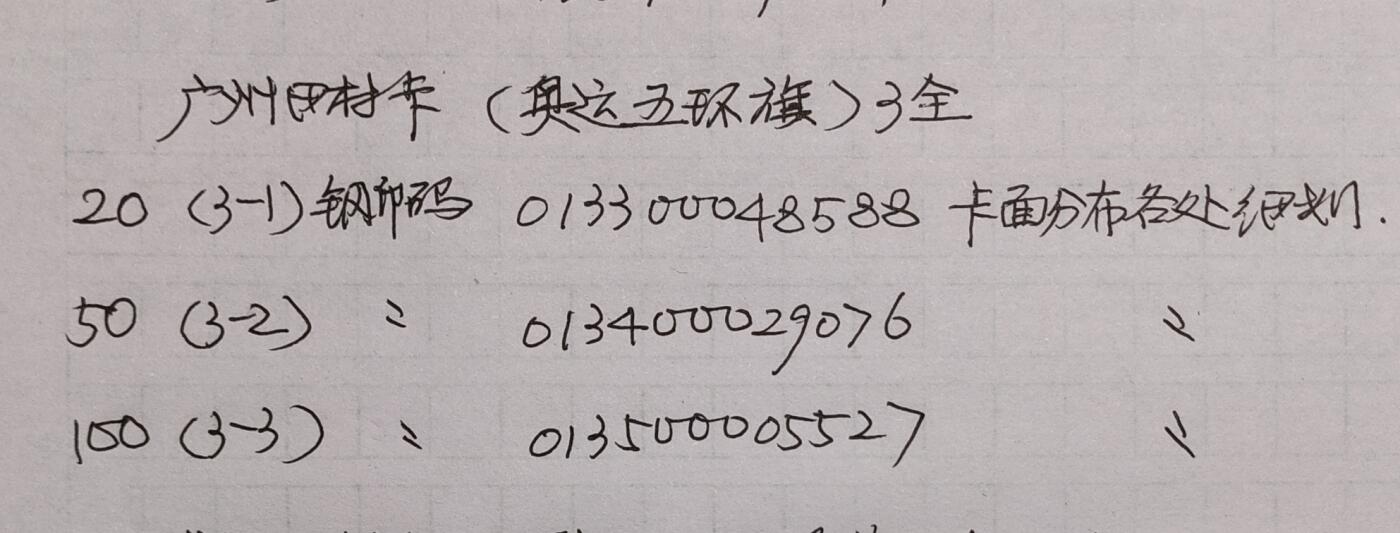 广州田村卡（奥运五环旗）3全
20 (3-1) 钢印码 013300048588 卡面分布各处细划.
50 (3-2) 〃 013400029076 〃
100 (3-3) 〃 013500005527 〃